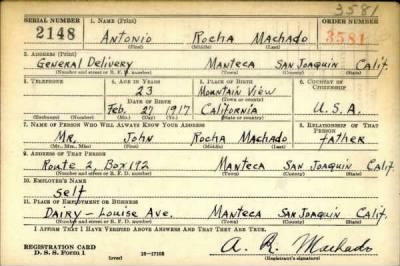 3581
SERIAL NUMBER 1. NAME (Print) ORDER NUMBER
2148 Antonio Rocha Machado 3581
(First) (Middle) (Last)
2. ADDRESS (Print)
General Delivery Manteca San Joaquin Calif.
(Number and street or R. F. D. number) (Town) (County) (State)
3. TELEPHONE 4. AGE IN YEARS 5. PLACE OF BIRTH 6. COUNTRY OF CITIZENSHIP
23 Mountain View
DATE OF BIRTH (Town or county)
Feb. 27 1917 California U.S.A.
(Exchange) (No.) (Mo.) (Day) (Yr.) (State or country)
7. NAME OF PERSON WHO WILL ALWAYS KNOW YOUR ADDRESS 8. RELATIONSHIP OF THAT PERSON
Mr. John Rocha Machado father
(Mr., Mrs., Miss) (First) (Middle) (Last)
9. ADDRESS OF THAT PERSON
Route 2, Box 192 Manteca San Joaquin Calif.
(Number and street or R. F. D. number) (Town) (County) (State)
10. EMPLOYER'S NAME
Self
11. PLACE OF EMPLOYMENT OR BUSINESS
Dairy - Louise Ave. Manteca San Joaquin Calif.
(Number and street or R. F. D. number) (Town) (County) (State)
I AFFIRM THAT I HAVE VERIFIED ABOVE ANSWERS AND THAT THEY ARE TRUE.
REGISTRATION CARD A. R. Machado
D. S. S. Form 1 (over) 16-17105 (Registrant's signature)